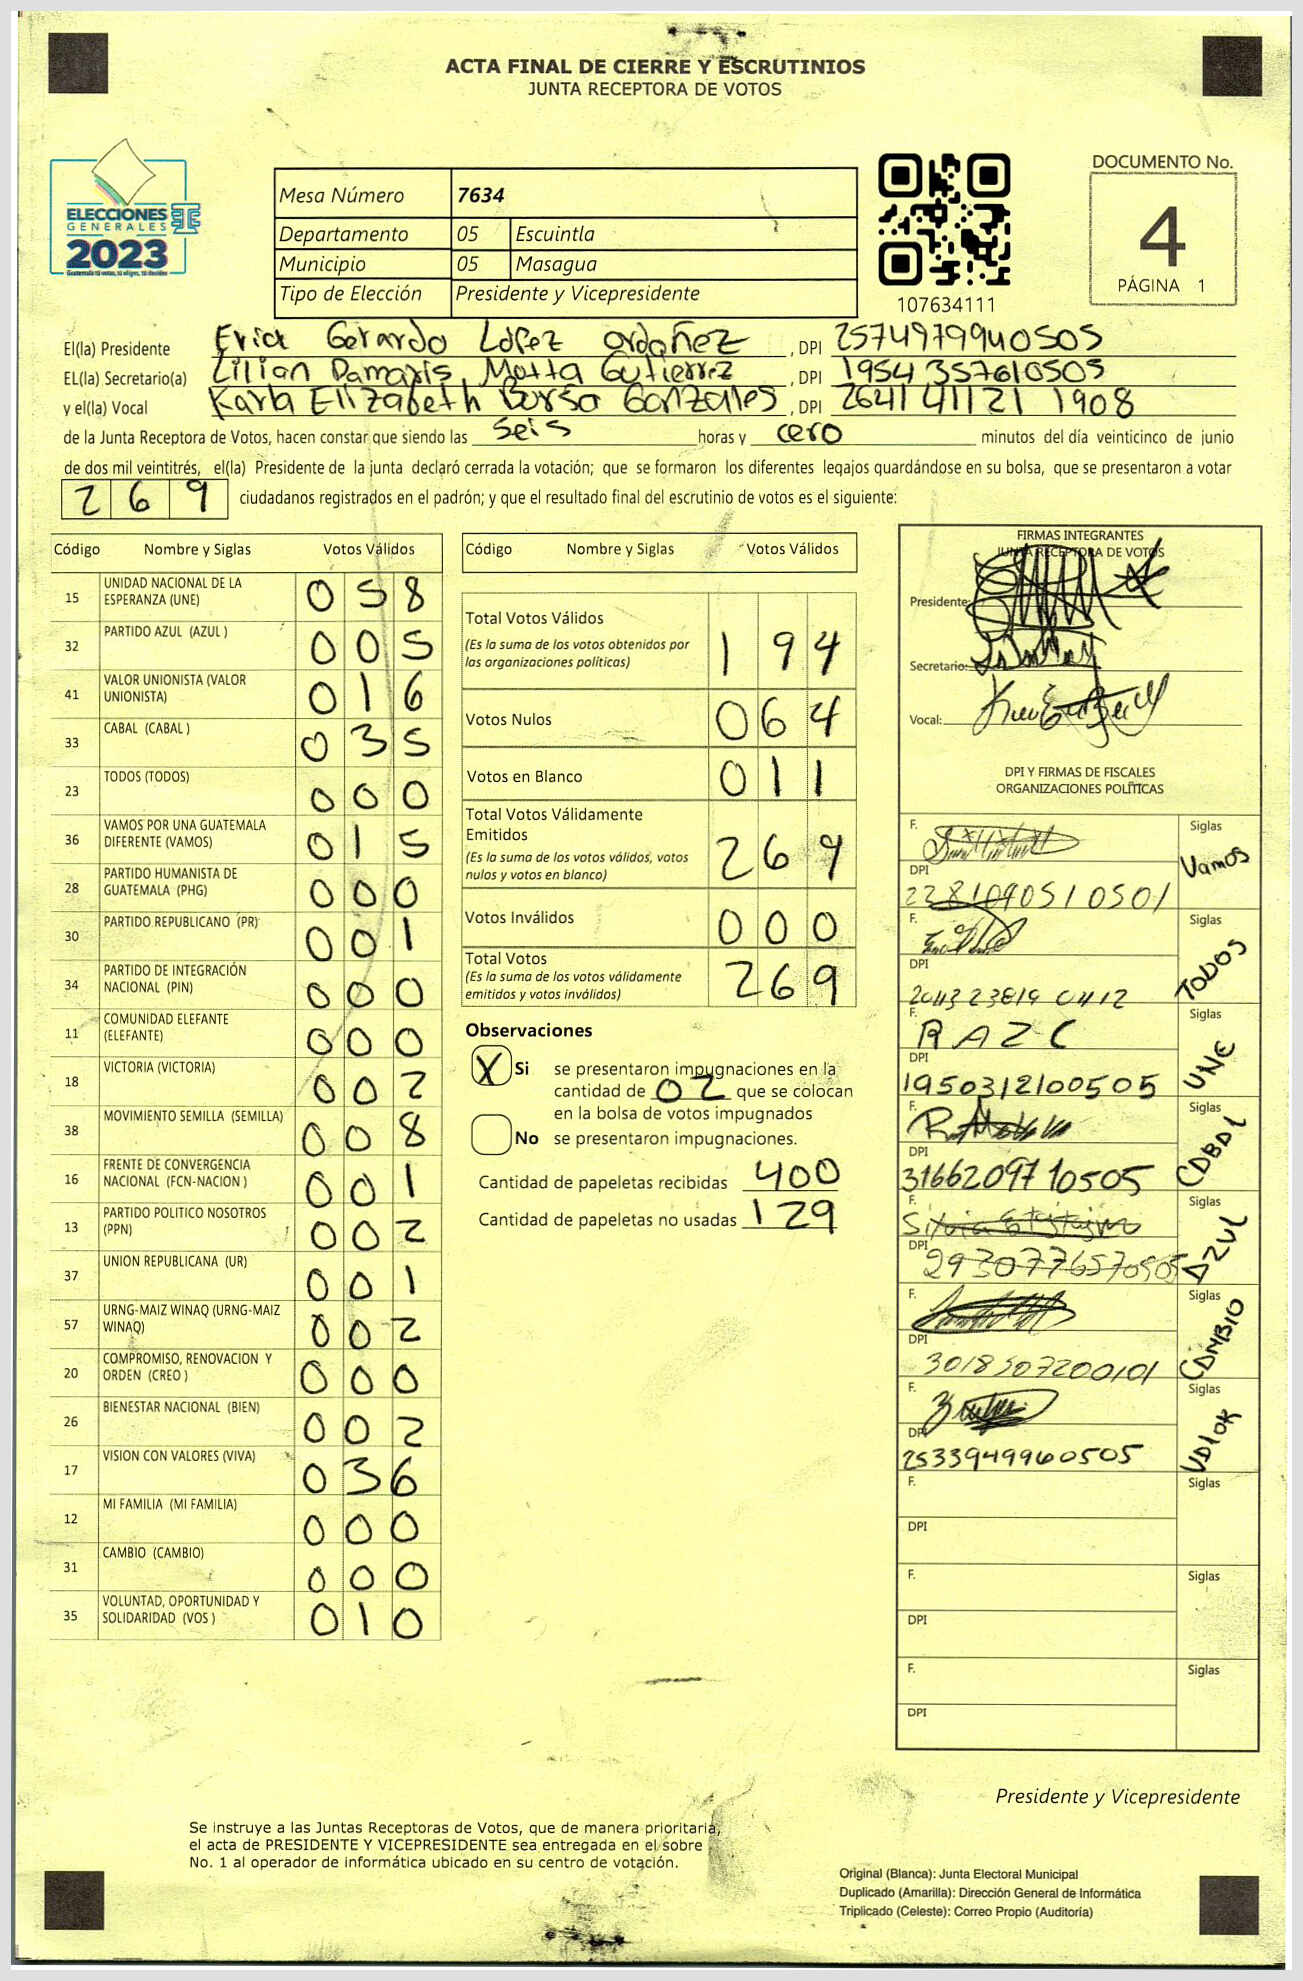 ACTA FINAL DE CIERRE Y ESCRUTINIOS
JUNTA RECEPTORA DE VOTOS
ELECCIONES
GENERALES
2023
Mesa Número 7634
Departamento 05 Escuintla
Municipio 05 Masagua
Tipo de Elección Presidente y Vicepresidente
107634111
DOCUMENTO No.
4
PÁGINA 1
El(la) Presidente Erick Gerardo López Ordoñez, DPI 2574979940505
EL(la) Secretario(a) Lilian Damaris Motta Gutierrez, DPI 1954357610505
y el(la) Vocal Karla Elizabeth Gonzales, DPI 2641411211908
de la Junta Receptora de Votos, hacen constar que siendo las seis horas y cero minutos del día veinticinco de junio
de dos mil veintitrés, el(la) Presidente de la junta declaró cerrada la votación; que se formaron los diferentes legajos quardándose en su bolsa, que se presentaron a votar
269 ciudadanos registrados en el padrón; y que el resultado final del escrutinio de votos es el siguiente:
Código Nombre y Siglas Votos Válidos
15 UNIDAD NACIONAL DE LA ESPERANZA (UNE) 058
32 PARTIDO AZUL (AZUL ) 005
41 VALOR UNIONISTA (VALOR UNIONISTA) 016
33 CABAL (CABAL ) 035
23 TODOS (TODOS) 000
36 VAMOS POR UNA GUATEMALA DIFERENTE (VAMOS) 015
28 PARTIDO HUMANISTA DE GUATEMALA (PHG) 000
30 PARTIDO REPUBLICANO (PR) 001
34 PARTIDO DE INTEGRACIÓN NACIONAL (PIN) 000
11 COMUNIDAD ELEFANTE (ELEFANTE) 000
18 VICTORIA (VICTORIA) 002
38 MOVIMIENTO SEMILLA (SEMILLA) 008
16 FRENTE DE CONVERGENCIA NACIONAL (FCN-NACION ) 001
13 PARTIDO POLITICO NOSOTROS (PPN) 002
37 UNION REPUBLICANA (UR) 001
57 URNG-MAIZ WINAQ (URNG-MAIZ WINAQ) 002
20 COMPROMISO, RENOVACION Y ORDEN (CREO ) 000
26 BIENESTAR NACIONAL (BIEN) 002
17 VISION CON VALORES (VIVA) 036
12 MI FAMILIA (MI FAMILIA) 000
31 CAMBIO (CAMBIO) 000
35 VOLUNTAD, OPORTUNIDAD Y SOLIDARIDAD (VOS ) 010
Código Nombre y Siglas Votos Válidos
Total Votos Válidos
(Es la suma de los votos obtenidos por
las organizaciones políticas) 194
Votos Nulos 064
Votos en Blanco 011
Total Votos Válidamente
Emitidos
(Es la suma de los votos válidos, votos
nulos y votos en blanco) 269
Votos Inválidos 000
Total Votos
(Es la suma de los votos válidamente
emitidos y votos inválidos) 269
Observaciones
X Si se presentaron impugnaciones en la
cantidad de 02 que se colocan
en la bolsa de votos impugnados
No se presentaron impugnaciones.
Cantidad de papeletas recibidas 400
Cantidad de papeletas no usadas 129
FIRMAS INTEGRANTES
JUNTA RECEPTORA DE VOTOS
Presidente:
Secretario:
Vocal:
DPI Y FIRMAS DE FISCALES
ORGANIZACIONES POLÍTICAS
F. Siglas Vamos
DPI 2281090510501
F. Siglas TODOS
DPI
F. RAZC Siglas UNE
DPI 1950312100505
F. Siglas CABAL
DPI 3166209710505
F. Siglas AZUL
DPI 2930776570505
F. Siglas CAMBIO
DPI 3018507200101
F. Siglas VALOR
DPI 2533949960505
F. Siglas
DPI
F. Siglas
DPI
F. Siglas
DPI
Presidente y Vicepresidente
Se instruye a las Juntas Receptoras de Votos, que de manera prioritaria,
el acta de PRESIDENTE Y VICEPRESIDENTE sea entregada en el sobre
No. 1 al operador de informática ubicado en su centro de votación.
Original (Blanca): Junta Electoral Municipal
Duplicado (Amarilla): Dirección General de Informática
Triplicado (Celeste): Correo Propio (Auditoría)